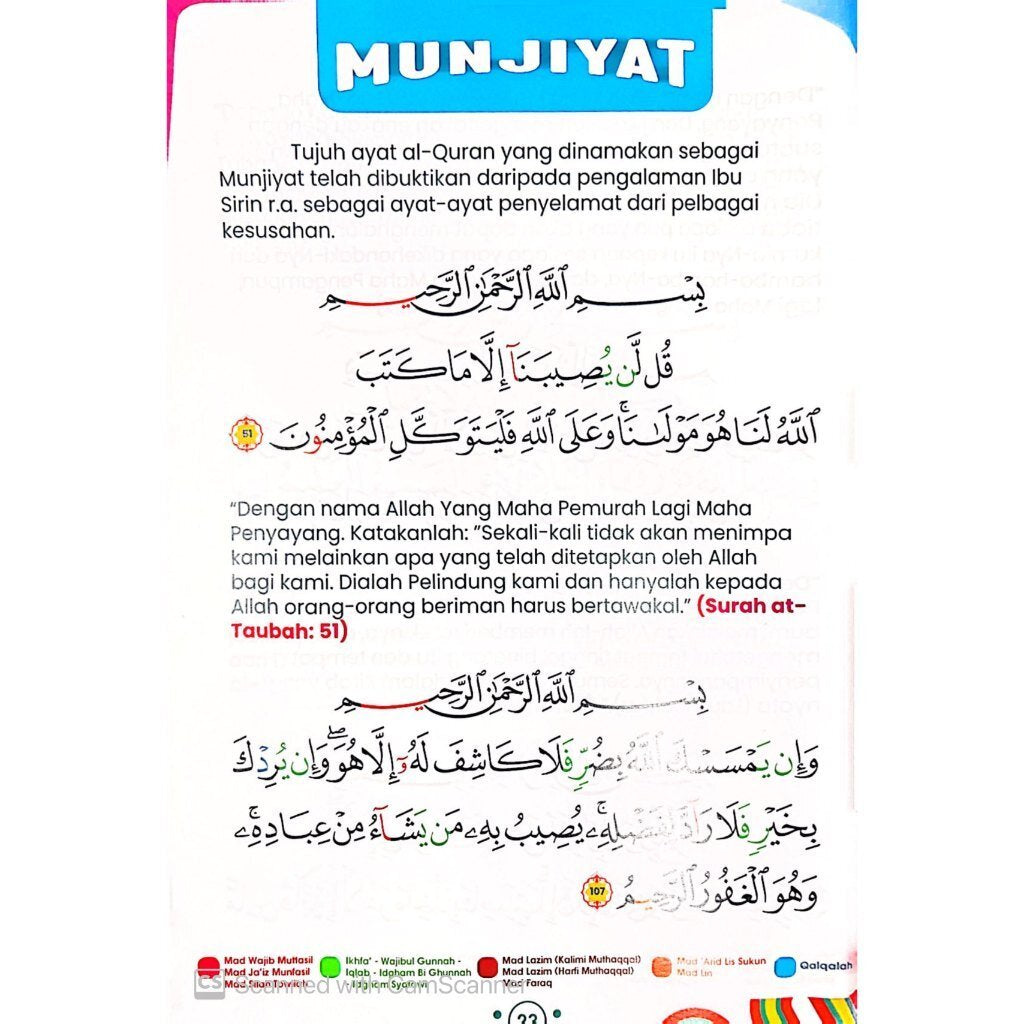 MUNJIYAT
Tujuh ayat al-Quran yang dinamakan sebagai
Munjiyat telah dibuktikan daripada pengalaman Ibu
Sirin r.a. sebagai ayat-ayat penyelamat dari pelbagai
kesusahan.
بِسْمِ ٱللَّهِ ٱلرَّحْمَٰنِ ٱلرَّحِيمِ
قُل لَّن يُصِيبَنَآ إِلَّا مَا كَتَبَ
ٱللَّهُ لَنَا هُوَ مَوْلَىٰنَا ۚ وَعَلَى ٱللَّهِ فَلْيَتَوَكَّلِ ٱلْمُؤْمِنُونَ 51
"Dengan nama Allah Yang Maha Pemurah Lagi Maha
Penyayang. Katakanlah: "Sekali-kali tidak akan menimpa
kami melainkan apa yang telah ditetapkan oleh Allah
bagi kami. Dialah Pelindung kami dan hanyalah kepada
Allah orang-orang beriman harus bertawakal." (Surah at-
Taubah: 51)
بِسْمِ ٱللَّهِ ٱلرَّحْمَٰنِ ٱلرَّحِيمِ
وَإِن يَمْسَسْكَ ٱللَّهُ بِضُرٍّ فَلَا كَاشِفَ لَهُۥٓ إِلَّا هُوَ ۖ وَإِن يُرِدْكَ
بِخَيْرٍ فَلَا رَآدَّ لِفَضْلِهِۦ ۚ يُصِيبُ بِهِۦ مَن يَشَآءُ مِنْ عِبَادِهِۦ ۚ
وَهُوَ ٱلْغَفُورُ ٱلرَّحِيمُ 107
Mad Wajib Muttasil
Mad Ja'iz Munfasil
Mad Silah Towilah
Ikhfa' - Wajibul Gunnah -
Iqlab - Idgham Bi Ghunnah
- Idgham Syafawi
Mad Lazim (Kalimi Muthaqqal)
Mad Lazim (Harfi Muthaqqal)
Mad Faraq
Mad 'Arid Lis Sukun
Mad Lin
Qalqalah
CS Scanned with CamScanner
23